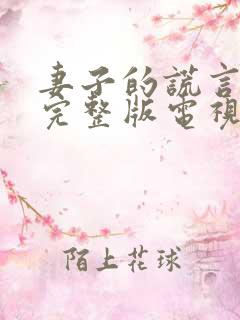 妻子的謊言
完整版電視
陌上花球